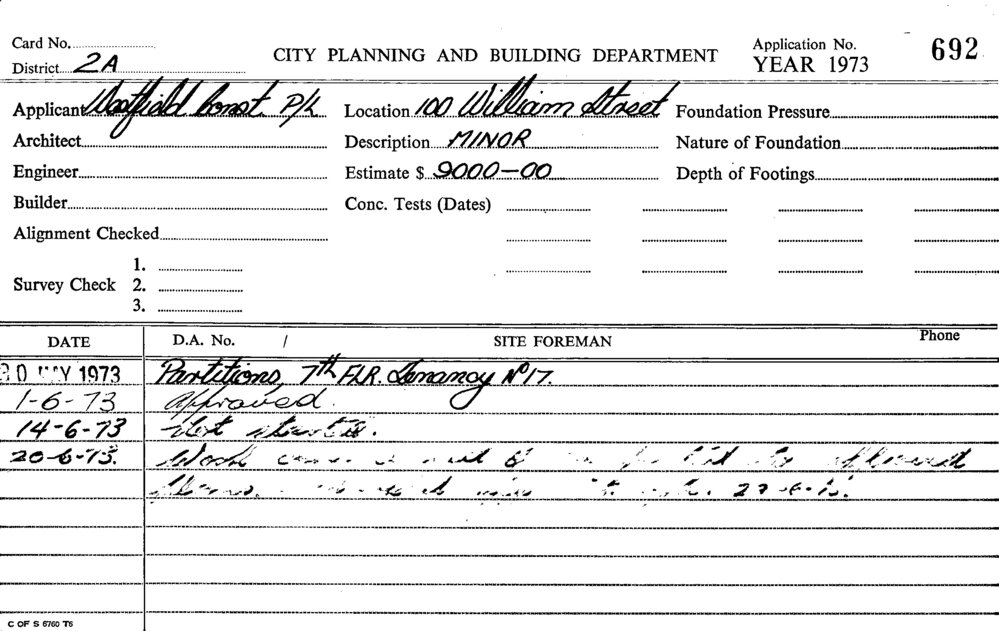 Card No.
District 2A
CITY PLANNING AND BUILDING DEPARTMENT
Application No. 692
YEAR 1973
Applicant Westfield Const. P/L Location 100 William Street Foundation Pressure
Architect Description MINOR Nature of Foundation
Engineer Estimate $ 9000-00 Depth of Footings
Builder Conc. Tests (Dates)
Alignment Checked
1.
Survey Check 2.
3.
DATE D.A. No. / SITE FOREMAN Phone
30 MAY 1973 Partitions, 7th FLR. Tenancy No 17.
1-6-73 Approved.
14-6-73 Not started.
20-6-73. Work
C OF S 6760 T6